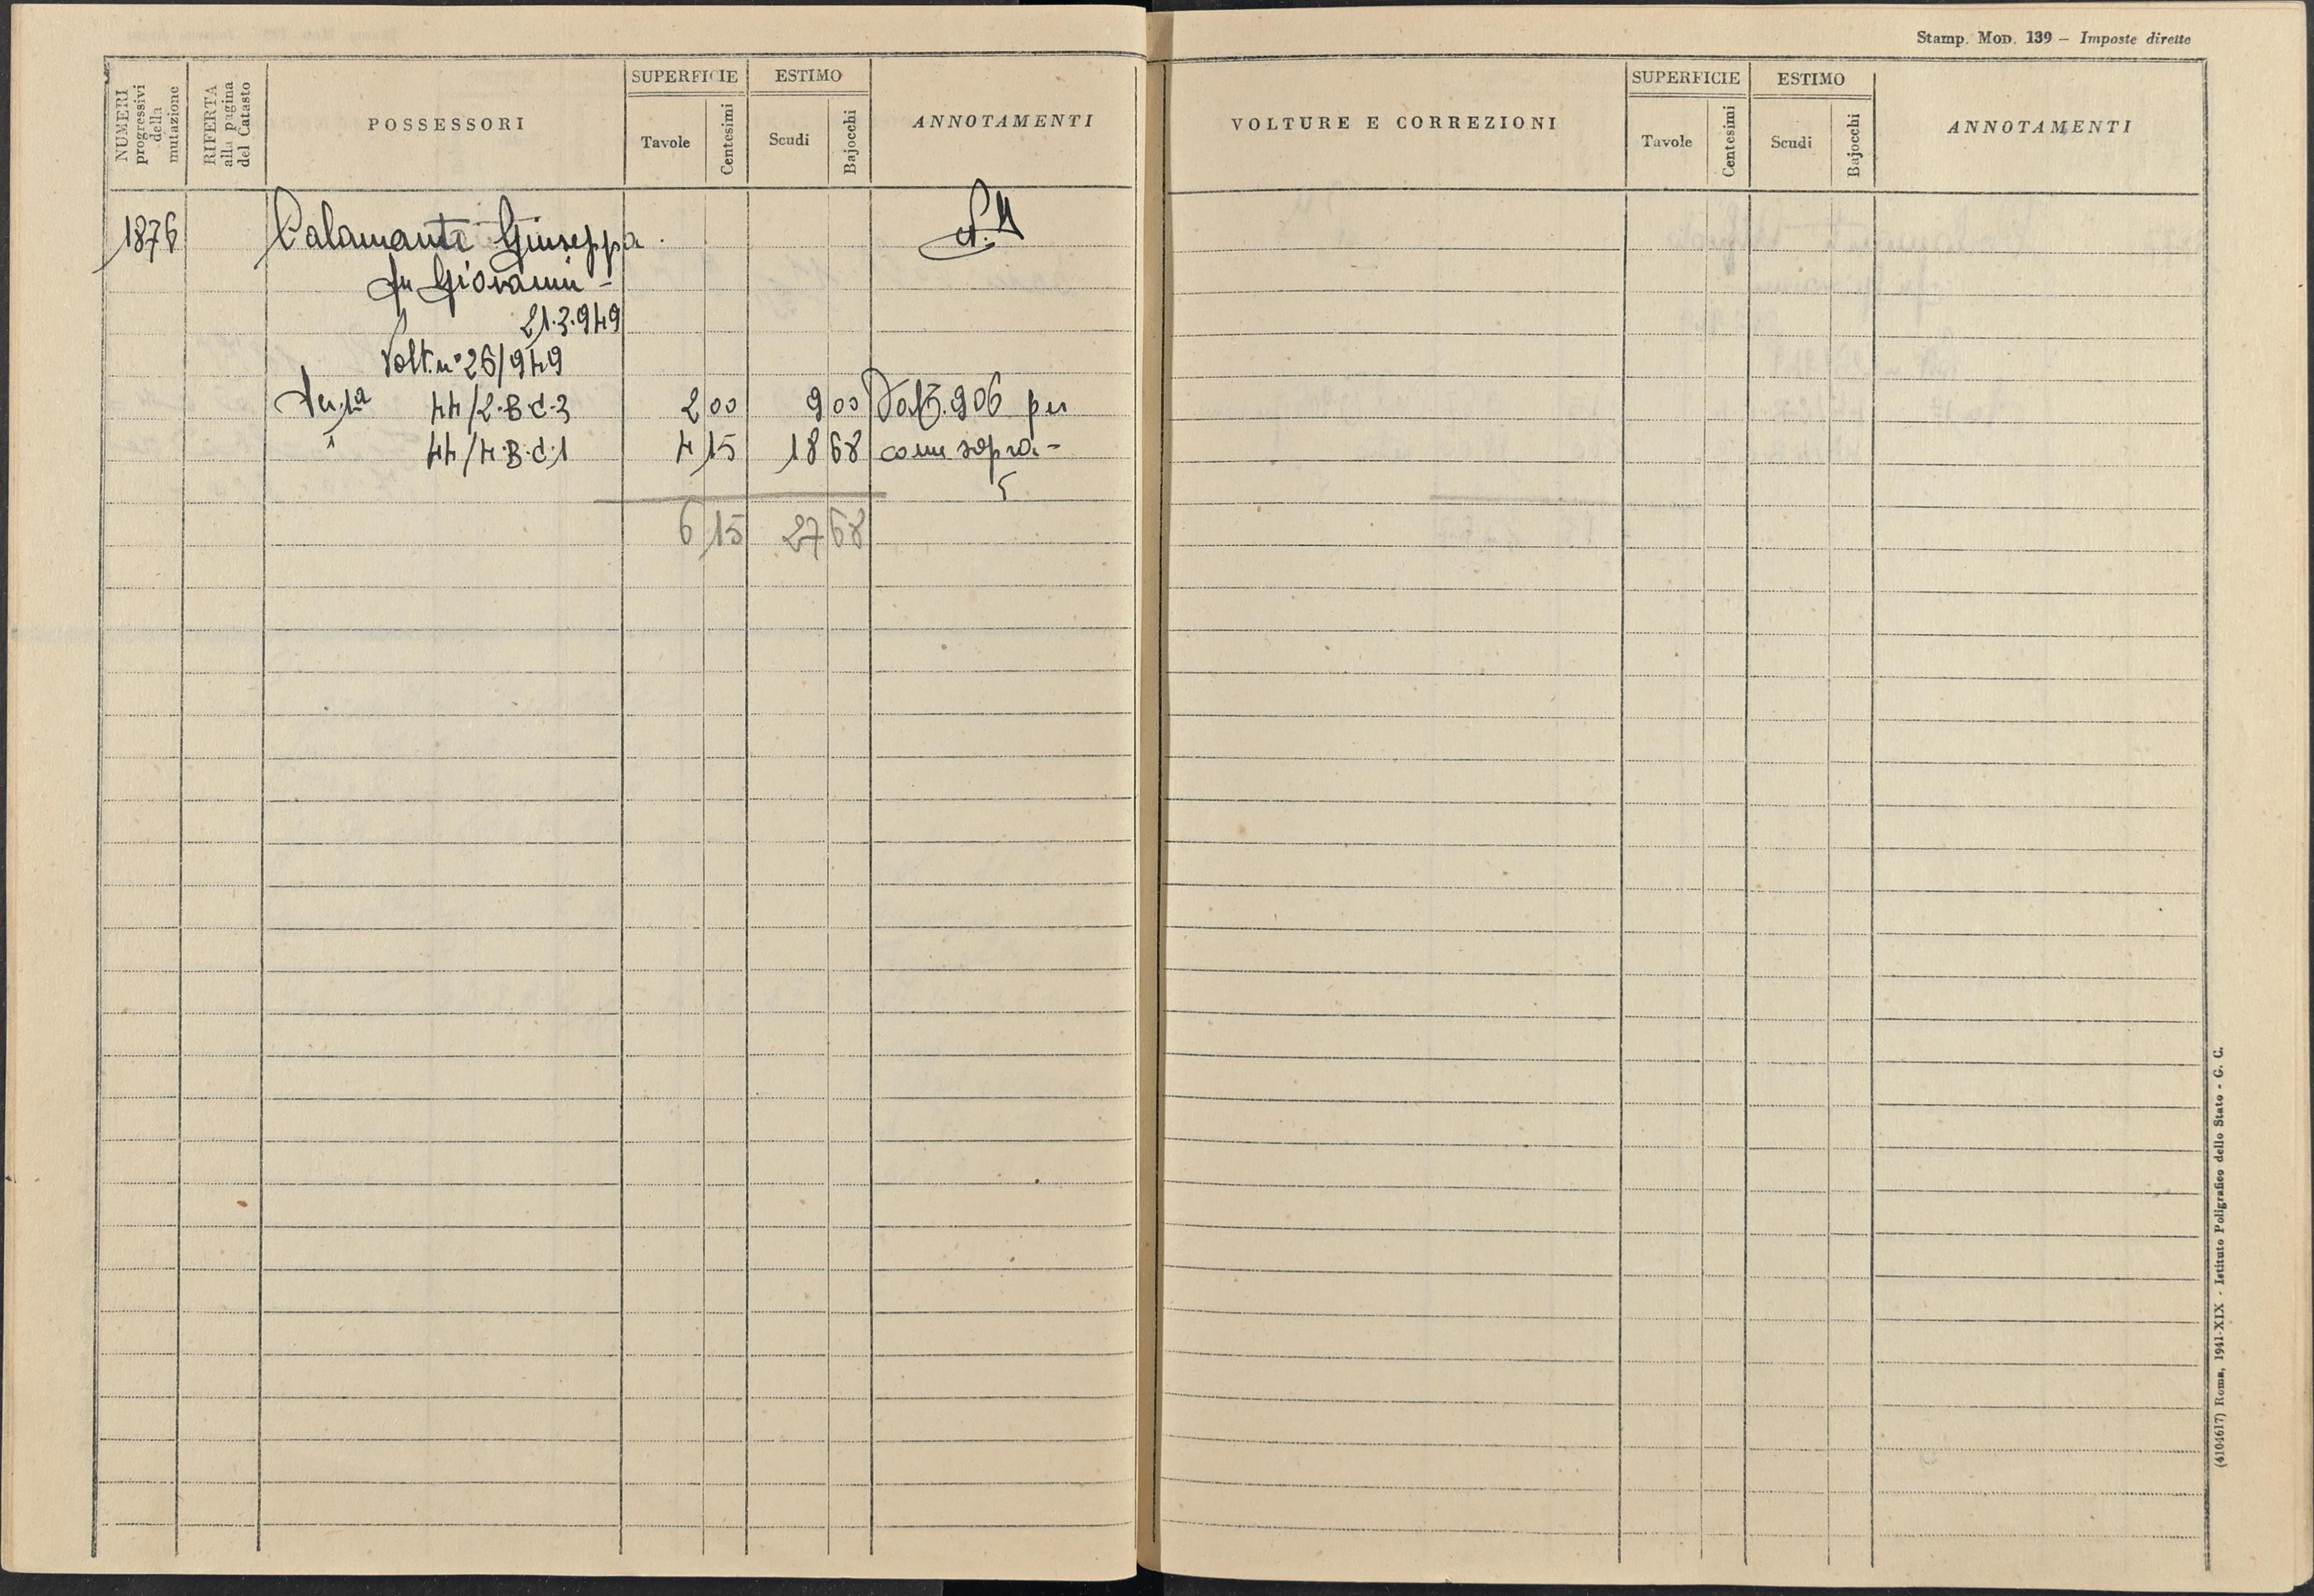 Stamp. Mod. 139 — Imposte dirette
NUMERI progressivi della mutazione
RIFERTA alla pagina del Catasto
POSSESSORI
SUPERFICIE
Tavole
Centesimi
ESTIMO
Scudi
Bajocchi
ANNOTAMENTI
1876 Calamanti Giuseppa
fu Giovanni -
21.3.949
Volt. n° 26/949
44/2.B.C.3 2 00 9 00 906 per
44/4.B.C.1 4 15 18 68 come sopra -
6 15 27 68
VOLTURE E CORREZIONI
SUPERFICIE
Tavole
Centesimi
ESTIMO
Scudi
Bajocchi
ANNOTAMENTI
(4104617) Roma, 1941-XIX - Istituto Poligrafico dello Stato - G. C.